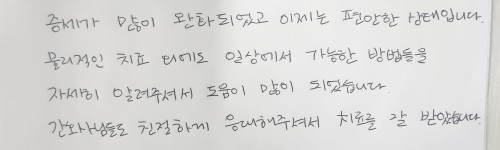 증세가 많이 완화되었고 이제는 편안한 상태입니다.
물리적인 치료 외에도 일상에서 가능한 방법들을
자세히 알려주셔서 도움이 많이 되었습니다.
간호사님들도 친절하게 응대해주셔서 치료를 잘 받았습니다.